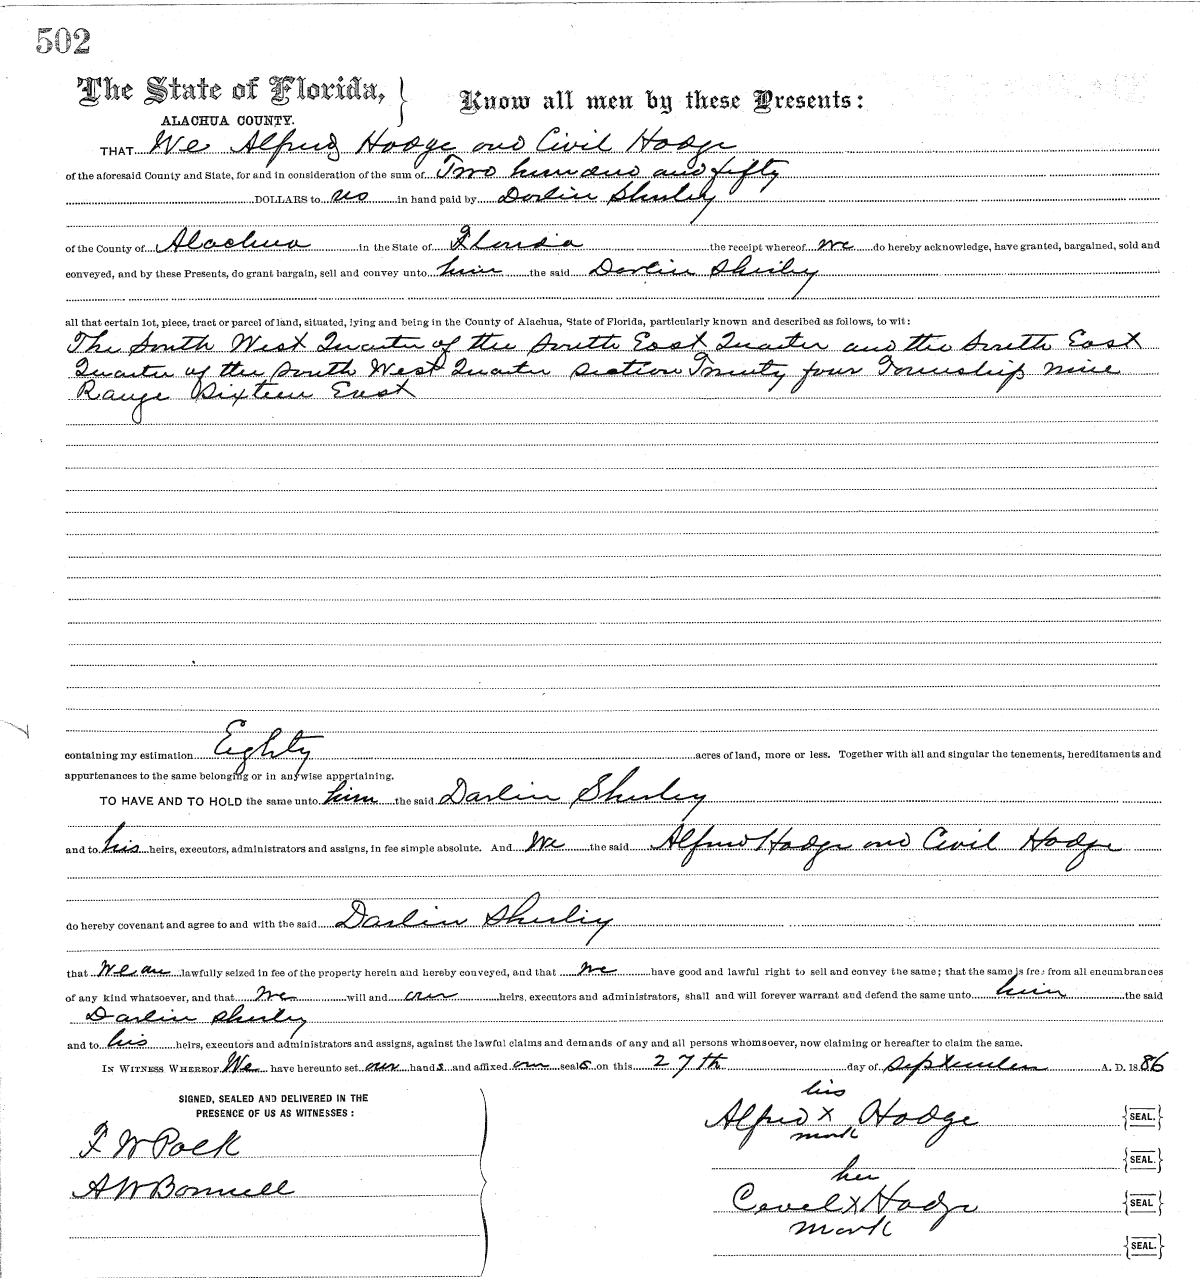 502
The State of Florida,
ALACHUA COUNTY.
Know all men by these Presents:
THAT We Alfred Hodge and Civil Hodge
of the aforesaid County and State, for and in consideration of the sum of Two hundred and fifty
DOLLARS to us in hand paid by Darlin Shirley
of the County of Alachua in the State of Florida the receipt whereof we do hereby acknowledge, have granted, bargained, sold and
conveyed, and by these Presents, do grant bargain, sell and convey unto him the said Darlin Shirley
all that certain lot, piece, tract or parcel of land, situated, lying and being in the County of Alachua, State of Florida, particularly known and described as follows, to wit:
The South West Quarter of the South East Quarter and the South East
Quarter of the South West Quarter Section Twenty four Township nine
Range Sixteen East
containing my estimation Eighty acres of land, more or less. Together with all and singular the tenements, hereditaments and
appurtenances to the same belonging or in anywise appertaining.
TO HAVE AND TO HOLD the same unto him the said Darlin Shirley
and to his heirs, executors, administrators and assigns, in fee simple absolute. And We the said Alfred Hodge and Civil Hodge
do hereby covenant and agree to and with the said Darlin Shirley
that We are lawfully seized in fee of the property herein and hereby conveyed, and that we have good and lawful right to sell and convey the same; that the same is free from all encumbrances
of any kind whatsoever, and that we will and our heirs, executors and administrators, shall and will forever warrant and defend the same unto him the said
Darlin Shirley
and to his heirs, executors and administrators and assigns, against the lawful claims and demands of any and all persons whomsoever, now claiming or hereafter to claim the same.
IN WITNESS WHEREOF, We have hereunto set our hands and affixed our seals on this 27th day of September A. D. 1886
SIGNED, SEALED AND DELIVERED IN THE
PRESENCE OF US AS WITNESSES:
F W Polk
A W Bonnell
his
Alfred X Hodge {SEAL.}
mark
{SEAL.}
her
Cevel X Hodge {SEAL}
mark
{SEAL.}